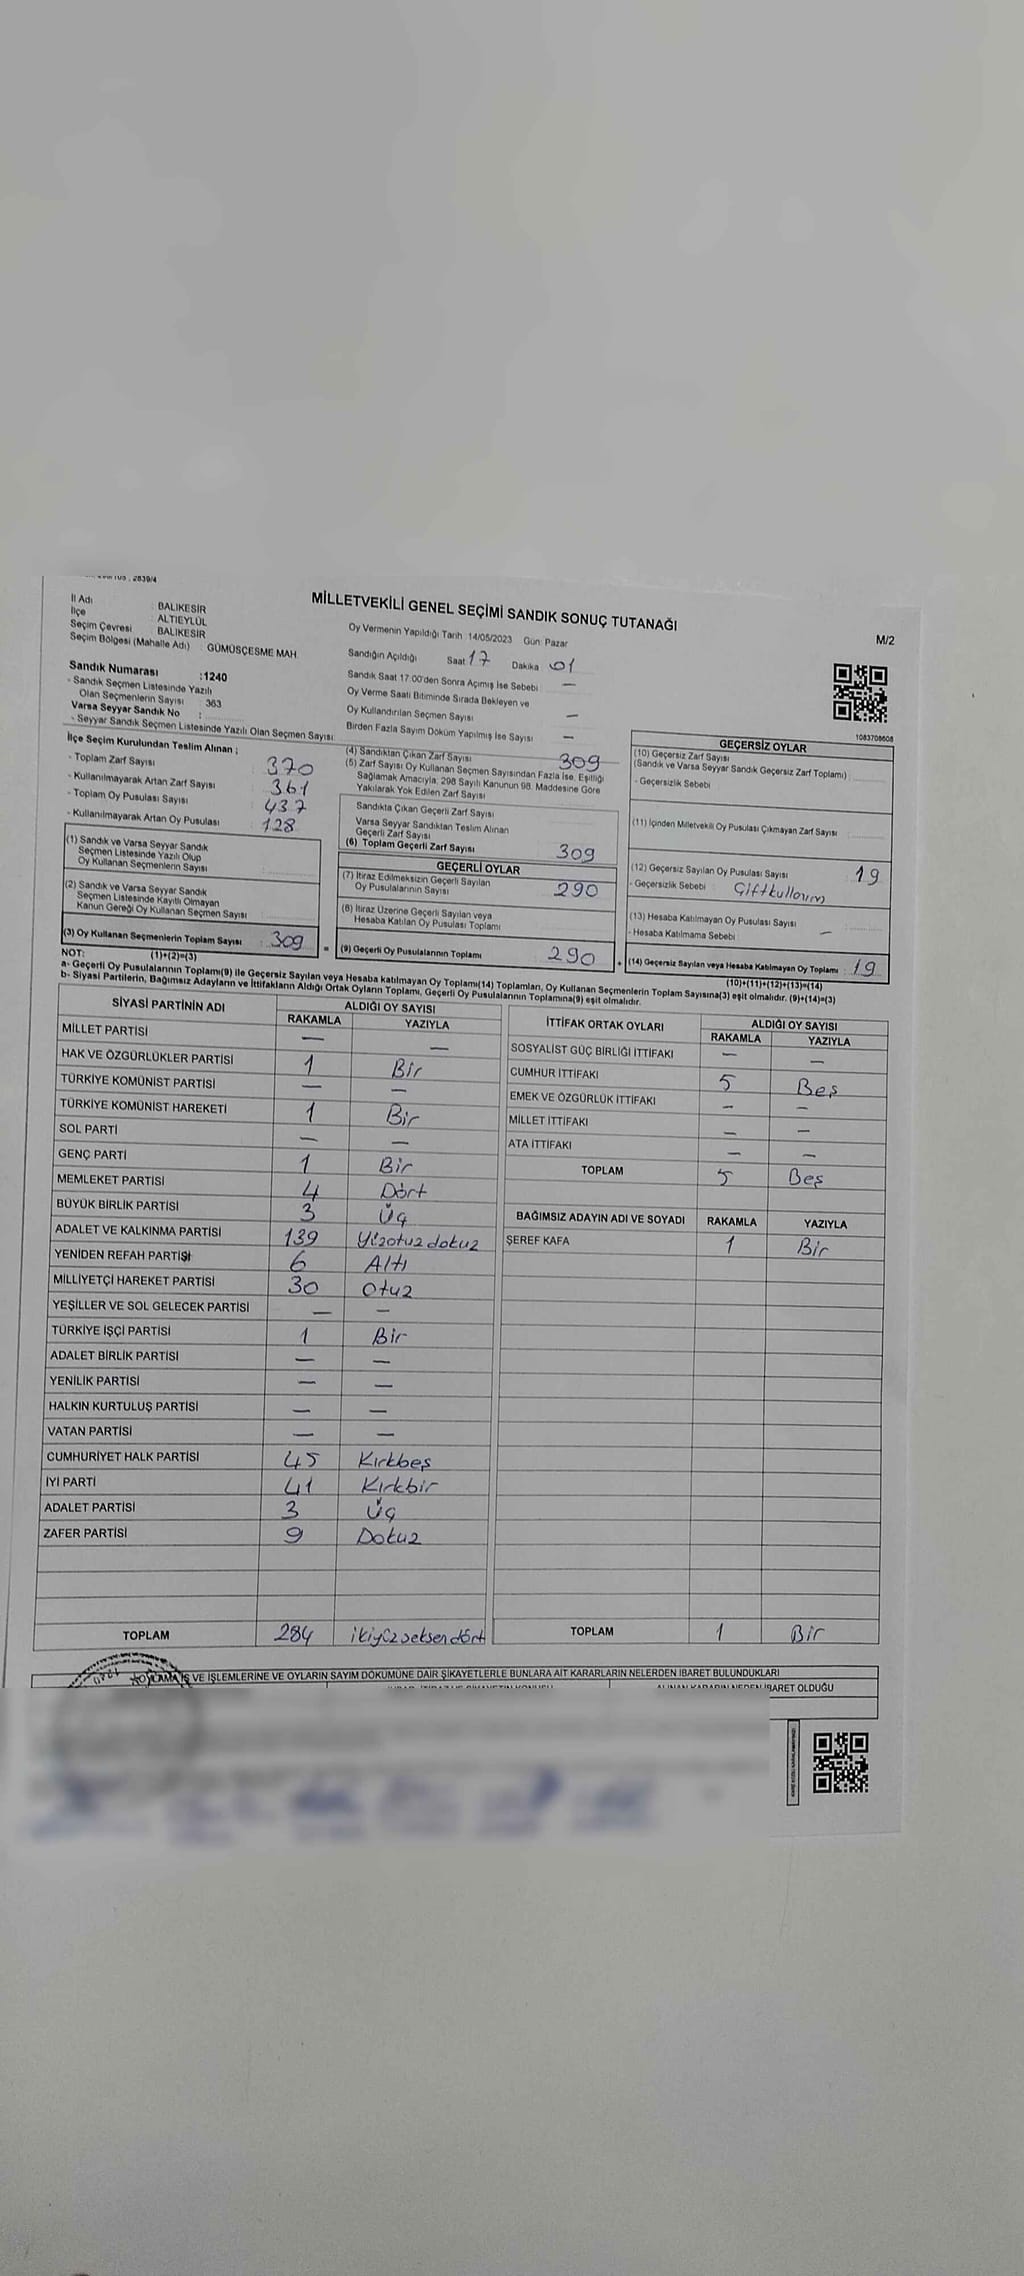 2839/4
İl Adı : BALIKESİR
İlçe : ALTIEYLÜL
Seçim Çevresi : BALIKESİR
Seçim Bölgesi (Mahalle Adı) : GÜMÜŞÇEŞME MAH.
MİLLETVEKİLİ GENEL SEÇİMİ SANDIK SONUÇ TUTANAĞI
M/2
Oy Vermenin Yapıldığı Tarih :14/05/2023 Gün: Pazar
Sandığın Açıldığı Saat 17 Dakika 01
Sandık Saat 17:00'den Sonra Açımış İse Sebebi : —
Oy Verme Saati Bitiminde Sırada Bekleyen ve
Oy Kullandırılan Seçmen Sayısı —
Birden Fazla Sayım Döküm Yapılmış İse Sayısı —
Sandık Numarası :1240
- Sandık Seçmen Listesinde Yazılı
Olan Seçmenlerin Sayısı : 363
Varsa Seyyar Sandık No :
- Seyyar Sandık Seçmen Listesinde Yazılı Olan Seçmen Sayısı:
1083708608
İlçe Seçim Kurulundan Teslim Alınan ;
- Toplam Zarf Sayısı : 370
- Kullanılmayarak Artan Zarf Sayısı : 361
- Toplam Oy Pusulası Sayısı : 437
- Kullanılmayarak Artan Oy Pusulası : 128
(1) Sandık ve Varsa Seyyar Sandık
Seçmen Listesinde Yazılı Olup
Oy Kullanan Seçmenlerin Sayısı :
(2) Sandık ve Varsa Seyyar Sandık
Seçmen Listesinde Kayıtlı Olmayan
Kanun Gereği Oy Kullanan Seçmen Sayısı :
(3) Oy Kullanan Seçmenlerin Toplam Sayısı : 309
(1)+(2)=(3)
(4) Sandıktan Çıkan Zarf Sayısı 309
(5) Zarf Sayısı Oy Kullanan Seçmen Sayısından Fazla İse, Eşitliği
Sağlamak Amacıyla; 298 Sayılı Kanunun 98. Maddesine Göre
Yakılarak Yok Edilen Zarf Sayısı
Sandıkta Çıkan Geçerli Zarf Sayısı
Varsa Seyyar Sandıktan Teslim Alınan
Geçerli Zarf Sayısı
(6) Toplam Geçerli Zarf Sayısı 309
GEÇERLİ OYLAR
(7) İtiraz Edilmeksizin Geçerli Sayılan
Oy Pusulalarının Sayısı 290
(8) İtiraz Üzerine Geçerli Sayılan veya
Hesaba Katılan Oy Pusulası Toplamı
= (9) Geçerli Oy Pusulalarının Toplamı 290
GEÇERSİZ OYLAR
(10) Geçersiz Zarf Sayısı
(Sandık ve Varsa Seyyar Sandık Geçersiz Zarf Toplamı) :
- Geçersizlik Sebebi :
(11) İçinden Milletvekili Oy Pusulası Çıkmayan Zarf Sayısı :
(12) Geçersiz Sayılan Oy Pusulası Sayısı : 19
- Geçersizlik Sebebi : Çiftkullanım
(13) Hesaba Katılmayan Oy Pusulası Sayısı : —
- Hesaba Katılmama Sebebi :
+ (14) Geçersiz Sayılan veya Hesaba Katılmayan Oy Toplamı : 19
(10)+(11)+(12)+(13)=(14)
NOT:
a- Geçerli Oy Pusulalarının Toplamı(9) ile Geçersiz Sayılan veya Hesaba katılmayan Oy Toplamı(14) Toplamları, Oy Kullanan Seçmenlerin Toplam Sayısına(3) eşit olmalıdır. (9)+(14)=(3)
b- Siyasi Partilerin, Bağımsız Adayların ve İttifakların Aldığı Ortak Oyların Toplamı, Geçerli Oy Pusulalarının Toplamına(9) eşit olmalıdır.
SİYASİ PARTİNİN ADI ALDIĞI OY SAYISI
RAKAMLA YAZIYLA
MİLLET PARTİSİ — —
HAK VE ÖZGÜRLÜKLER PARTİSİ 1 Bir
TÜRKİYE KOMÜNİST PARTİSİ — —
TÜRKİYE KOMÜNİST HAREKETİ 1 Bir
SOL PARTİ — —
GENÇ PARTİ 1 Bir
MEMLEKET PARTİSİ 4 Dört
BÜYÜK BİRLİK PARTİSİ 3 Üç
ADALET VE KALKINMA PARTİSİ 139 Yüzotuzdokuz
YENİDEN REFAH PARTİSİ 6 Altı
MİLLİYETÇİ HAREKET PARTİSİ 30 Otuz
YEŞİLLER VE SOL GELECEK PARTİSİ — —
TÜRKİYE İŞÇİ PARTİSİ 1 Bir
ADALET BİRLİK PARTİSİ — —
YENİLİK PARTİSİ — —
HALKIN KURTULUŞ PARTİSİ — —
VATAN PARTİSİ — —
CUMHURİYET HALK PARTİSİ 45 Kırkbeş
İYİ PARTİ 41 Kırkbir
ADALET PARTİSİ 3 Üç
ZAFER PARTİSİ 9 Dokuz
TOPLAM 284 ikiyüzseksendört
İTTİFAK ORTAK OYLARI ALDIĞI OY SAYISI
RAKAMLA YAZIYLA
SOSYALİST GÜÇ BİRLİĞİ İTTİFAKI — —
CUMHUR İTTİFAKI 5 Beş
EMEK VE ÖZGÜRLÜK İTTİFAKI — —
MİLLET İTTİFAKI — —
ATA İTTİFAKI — —
TOPLAM 5 Beş
BAĞIMSIZ ADAYIN ADI VE SOYADI RAKAMLA YAZIYLA
ŞEREF KAFA 1 Bir
TOPLAM 1 Bir
OYLAMA İŞ VE İŞLEMLERİNE VE OYLARIN SAYIM DÖKÜMÜNE DAİR ŞİKAYETLERLE BUNLARA AİT KARARLARIN NELERDEN İBARET BULUNDUKLARI
ALINAN KARARIN NEDEN İBARET OLDUĞU